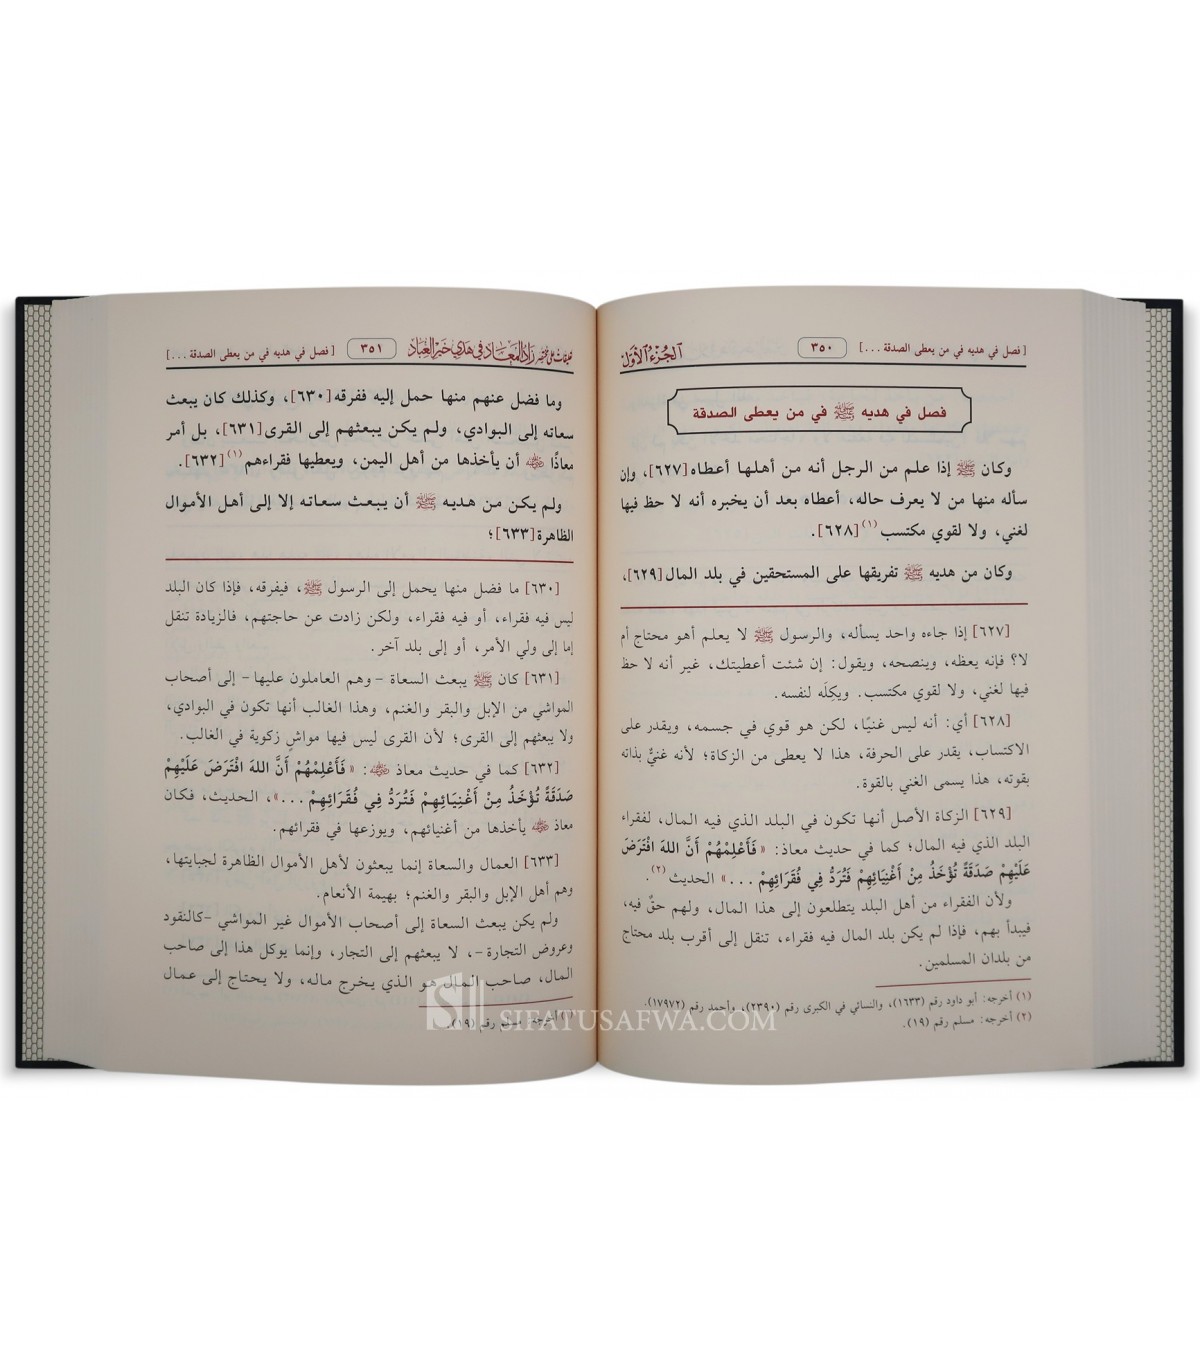 [فصل في هديه في من يعطى الصدقة ...]
٣٥٠
الجُزْءُ الأَوَّل
فصل في هديه ﷺ في من يعطى الصدقة
وكان ﷺ إذا علم من الرجل أنه من أهلها أعطاه[٦٢٧]، وإن
سأله منها من لا يعرف حاله، أعطاه بعد أن يخبره أنه لا حظ فيها
لغني، ولا لقوي مكتسب(١)[٦٢٨].
وكان من هديه ﷺ تفريقها على المستحقين في بلد المال[٦٢٩]،
[٦٢٧] إذا جاءه واحد يسأله، والرسول ﷺ لا يعلم أهو محتاج أم
لا؟ فإنه يعظه، وينصحه، ويقول: إن شئت أعطيتك، غير أنه لا حظ
فيها لغني، ولا لقوي مكتسب. ويكِلَه لنفسه.
[٦٢٨] أي: أنه ليس غنيًا، لكن هو قوي في جسمه، ويقدر على
الاكتساب، يقدر على الحرفة، هذا لا يعطى من الزكاة؛ لأنه غنيٌّ بذاته
بقوته، هذا يسمى الغني بالقوة.
[٦٢٩] الزكاة الأصل أنها تكون في البلد الذي فيه المال، لفقراء
البلد الذي فيه المال؛ كما في حديث معاذ: «فَأَعْلِمْهُمْ أَنَّ اللهَ افْتَرَضَ
عَلَيْهِمْ صَدَقَةً تُؤْخَذُ مِنْ أَغْنِيَائِهِمْ فَتُرَدُّ فِي فُقَرَائِهِمْ ...» الحديث(٢).
ولأن الفقراء من أهل البلد يتطلعون إلى هذا المال، ولهم حقٌ فيه،
فيبدأ بهم، فإذا لم يكن بلد المال فيه فقراء، تنقل إلى أقرب بلد محتاج
من بلدان المسلمين.
(١) أخرجه: أبو داود رقم (١٦٣٣)، والنسائي في الكبرى رقم (٢٣٩٠)، وأحمد رقم (١٧٩٧٢).
(٢) أخرجه: مسلم رقم (١٩).
زَادُ المَعَاد في هَدي خَيرِ العِبَاد
٣٥١
[فصل في هديه في من يعطى الصدقة ...]
وما فضل عنهم منها حمل إليه ففرقه[٦٣٠]، وكذلك كان يبعث
سعاته إلى البوادي، ولم يكن يبعثهم إلى القرى[٦٣١]، بل أمر
معاذًا رضي الله عنه أن يأخذها من أهل اليمن، ويعطيها فقراءهم(١)[٦٣٢].
ولم يكن من هديه ﷺ أن يبعث سعاته إلا إلى أهل الأموال
الظاهرة[٦٣٣]؛
[٦٣٠] ما فضل منها يحمل إلى الرسول ﷺ، فيفرقه، فإذا كان البلد
ليس فيه فقراء، أو فيه فقراء، ولكن زادت عن حاجتهم، فالزيادة تنقل
إما إلى ولي الأمر، أو إلى بلد آخر.
[٦٣١] كان ﷺ يبعث السعاة -وهم العاملون عليها- إلى أصحاب
المواشي من الإبل والبقر والغنم، وهذا الغالب أنها تكون في البوادي،
ولا يبعثهم إلى القرى؛ لأن القرى ليس فيها مواشٍ زكوية في الغالب.
[٦٣٢] كما في حديث معاذ رضي الله عنه: «فَأَعْلِمْهُمْ أَنَّ اللهَ افْتَرَضَ عَلَيْهِمْ
صَدَقَةً تُؤْخَذُ مِنْ أَغْنِيَائِهِمْ فَتُرَدُّ فِي فُقَرَائِهِمْ ...»، الحديث، فكان
معاذ رضي الله عنه يأخذها من أغنيائهم، ويوزعها في فقرائهم.
[٦٣٣] العمال والسعاة إنما يبعثون لأهل الأموال الظاهرة لجبايتها،
وهم أهل الإبل والبقر والغنم؛ بهيمة الأنعام.
ولم يكن يبعث السعاة إلى أصحاب الأموال غير المواشي -كالنقود
وعروض التجارة-، لا يبعثهم إلى التجار، وإنما يوكل هذا إلى صاحب
المال، صاحب المال هو الذي يخرج ماله، ولا يحتاج إلى عمال
(١) أخرجه: مسلم رقم (١٩).
SIFATUSAFWA.COM